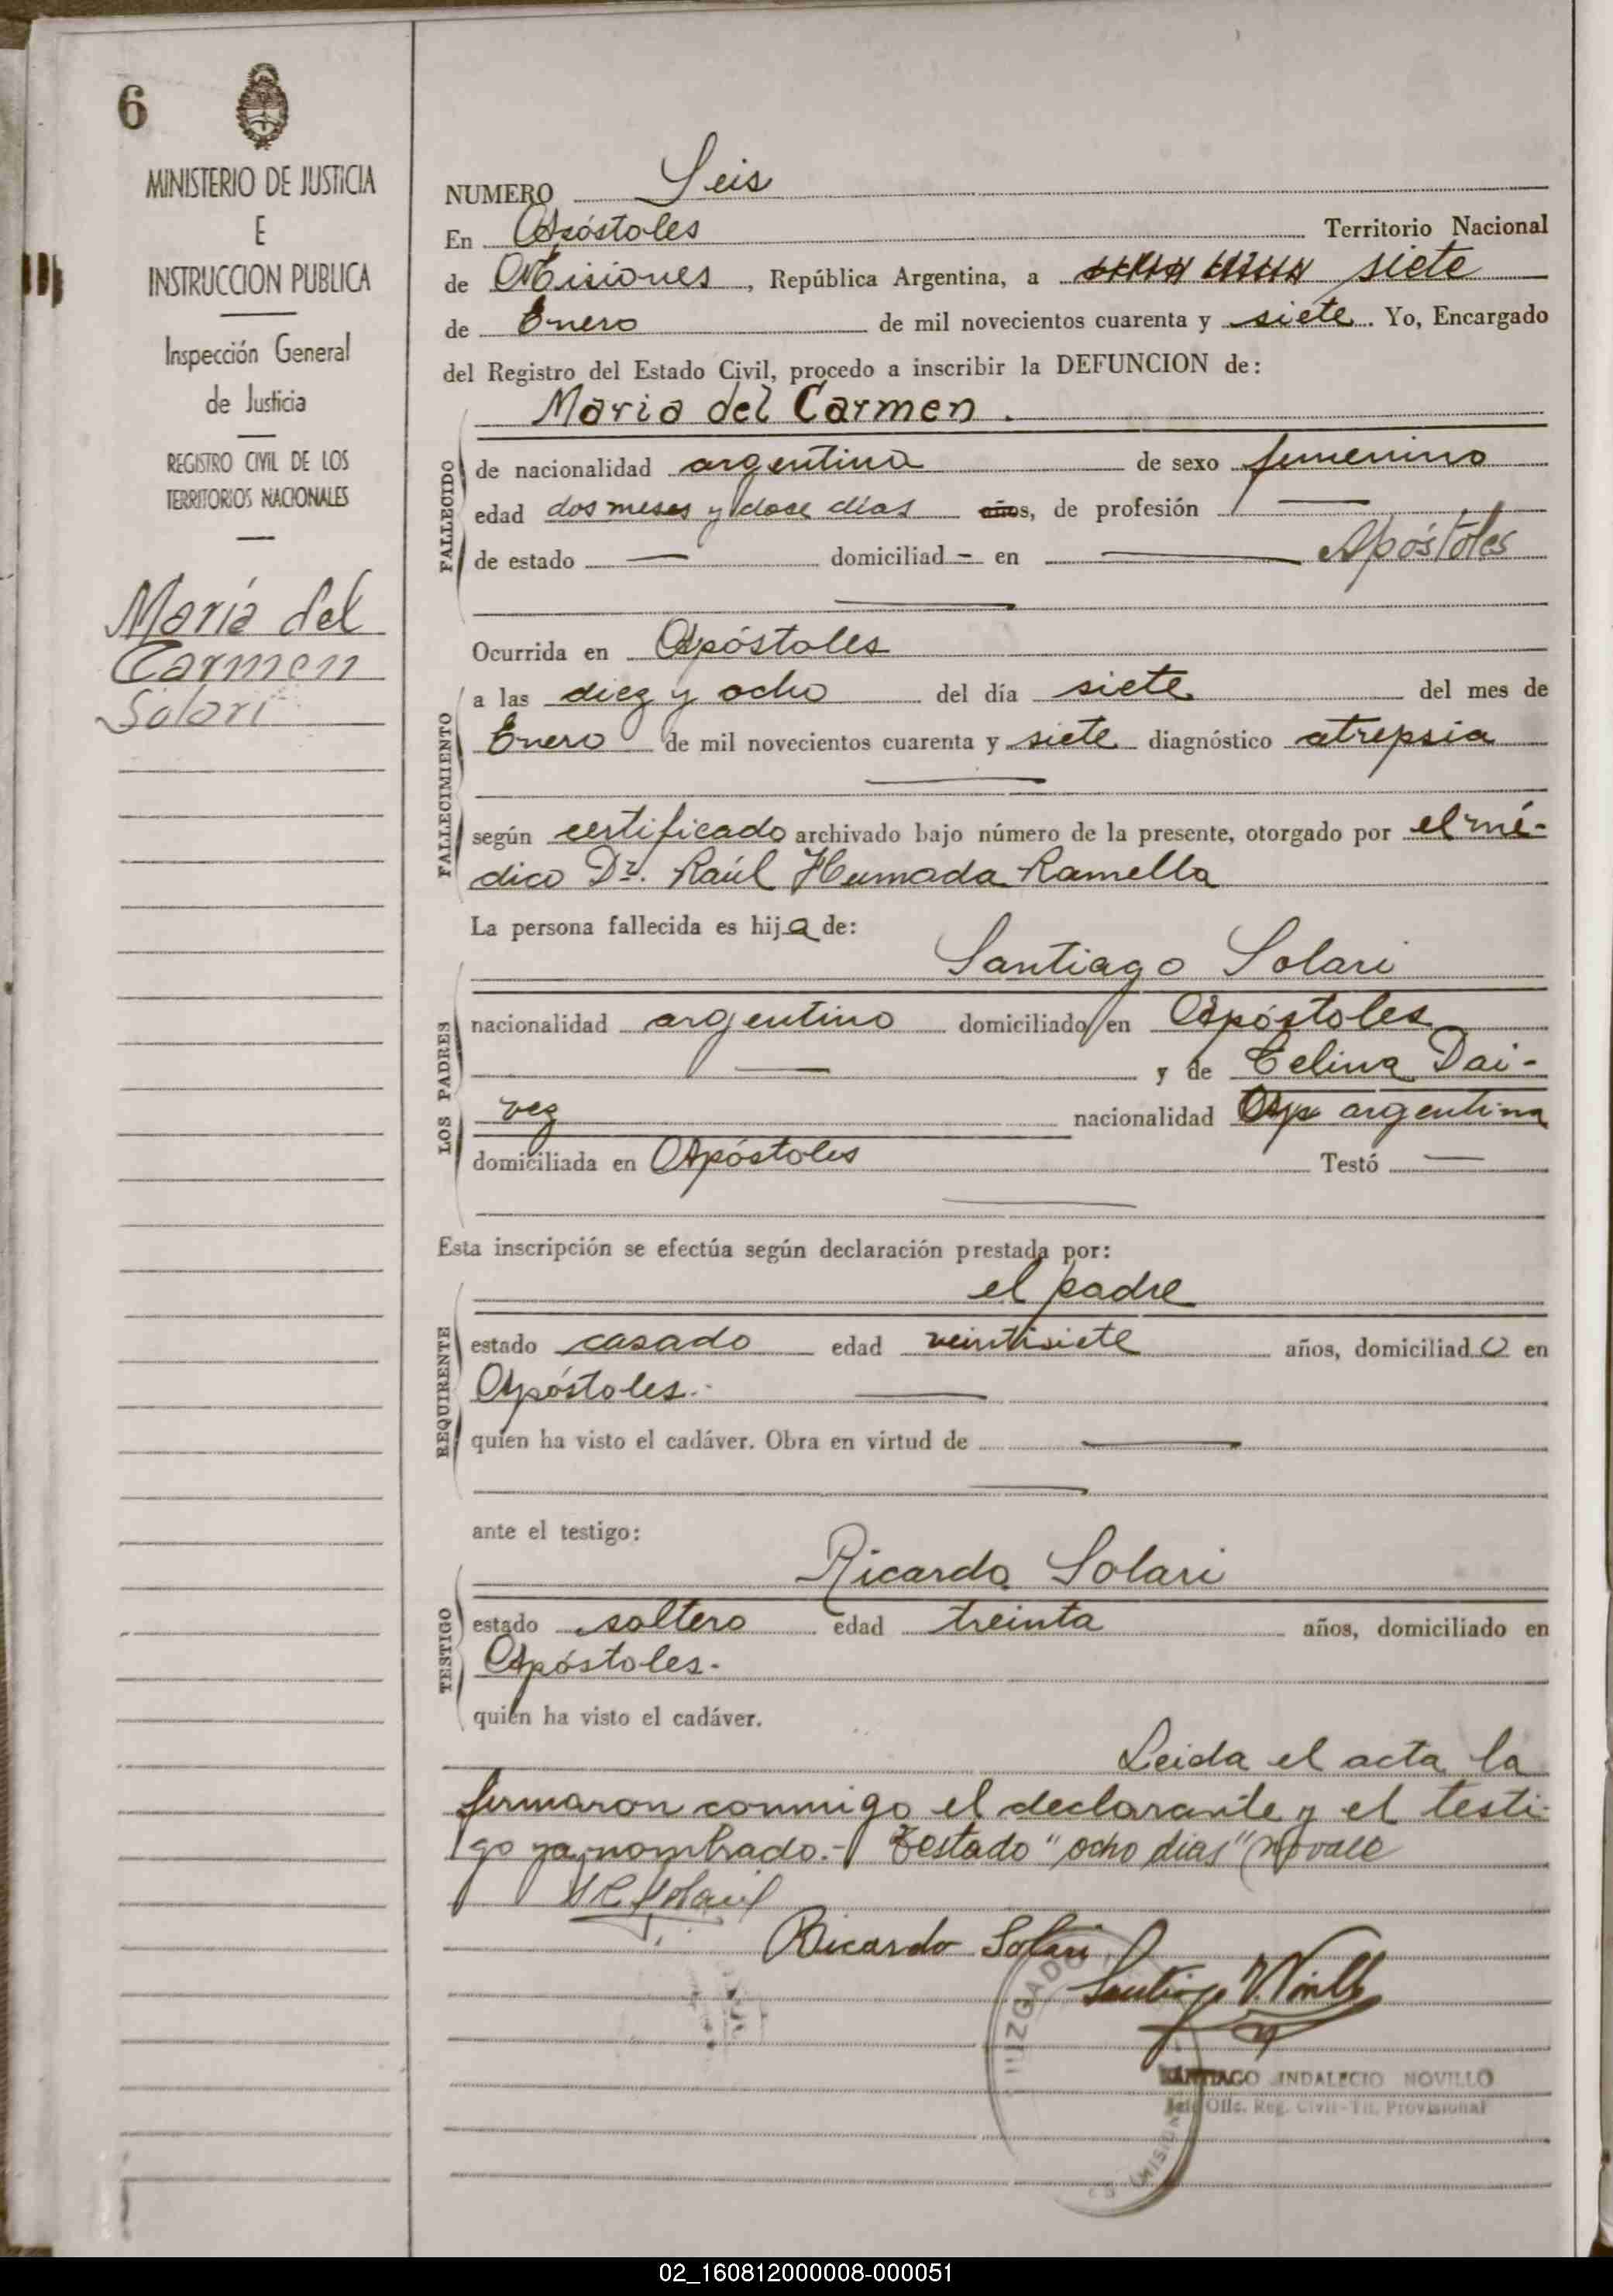 6
MINISTERIO DE JUSTICIA
E
INSTRUCCION PUBLICA
Inspección General
de Justicia
REGISTRO CIVIL DE LOS
TERRITORIOS NACIONALES
María del
Carmen
Solari
NUMERO Seis
En Apóstoles Territorio Nacional
de Misiones, República Argentina, a siete
de Enero de mil novecientos cuarenta y siete. Yo, Encargado
del Registro del Estado Civil, procedo a inscribir la DEFUNCION de:
Maria del Carmen.
FALLECIDO
de nacionalidad argentina de sexo femenino
edad dos meses y dose días años, de profesión —
de estado — domiciliad - en — Apóstoles
Ocurrida en Apóstoles
FALLECIMIENTO
a las diez y ocho del día siete del mes de
Enero de mil novecientos cuarenta y siete diagnóstico atrepsia
según certificado archivado bajo número de la presente, otorgado por el mé-
dico Dr. Raúl Humada Ramella
La persona fallecida es hija de:
LOS PADRES
Santiago Solari
nacionalidad argentino domiciliado en Apóstoles
— y de Celina Dai-
vez nacionalidad argentina
domiciliada en Apóstoles Testó —
Esta inscripción se efectúa según declaración prestada por:
REQUIRENTE
el padre
estado casado edad veintisiete años, domiciliado en
Apóstoles. —
quien ha visto el cadáver. Obra en virtud de —
ante el testigo:
TESTIGO
Ricardo Solari
estado soltero edad treinta años, domiciliado en
Apóstoles.
quien ha visto el cadáver.
Leida el acta la
firmaron conmigo el declarante y el testi-
go ya nombrado.- Testado "ocho dias" no vale
Ricardo Solari
JUZGADO
SANTIAGO INDALECIO NOVILLO
Jefe Ofic. Reg. Civil-Tit. Provisional
02_160812000008-000051